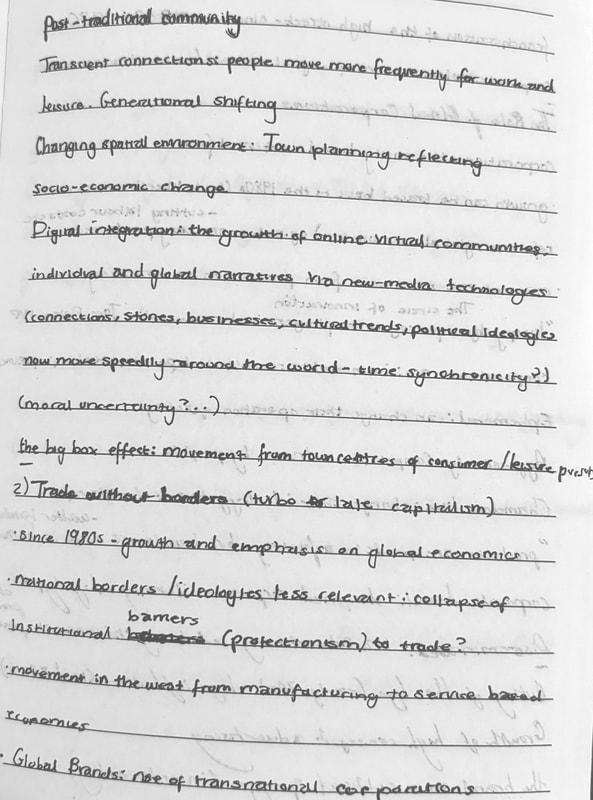 Post-traditional community
Transcient connections: people move more frequently for work and
leisure. Generational shifting
Changing spatial environment: Town planning reflecting
socio-economic change
Digital integration: the growth of online virtual communities,
individual and global narratives via new-media technologies
(connections, stories, businesses, cultural trends, political ideologies
now move speedily around the world - time synchronicity?)
(moral uncertainty?...)
the big box effect: movement from town centres of consumer /leisure
2) Trade without borders (turbo late capitalism)
·since 1980s - growth and emphasis on global economics
·national borders /ideologies less relevant: collapse of
barriers
Institutional (protectionism) to trade?
·movement in the west from manufacturing to service based
economies
· Global Brands: rise of transnational corporations